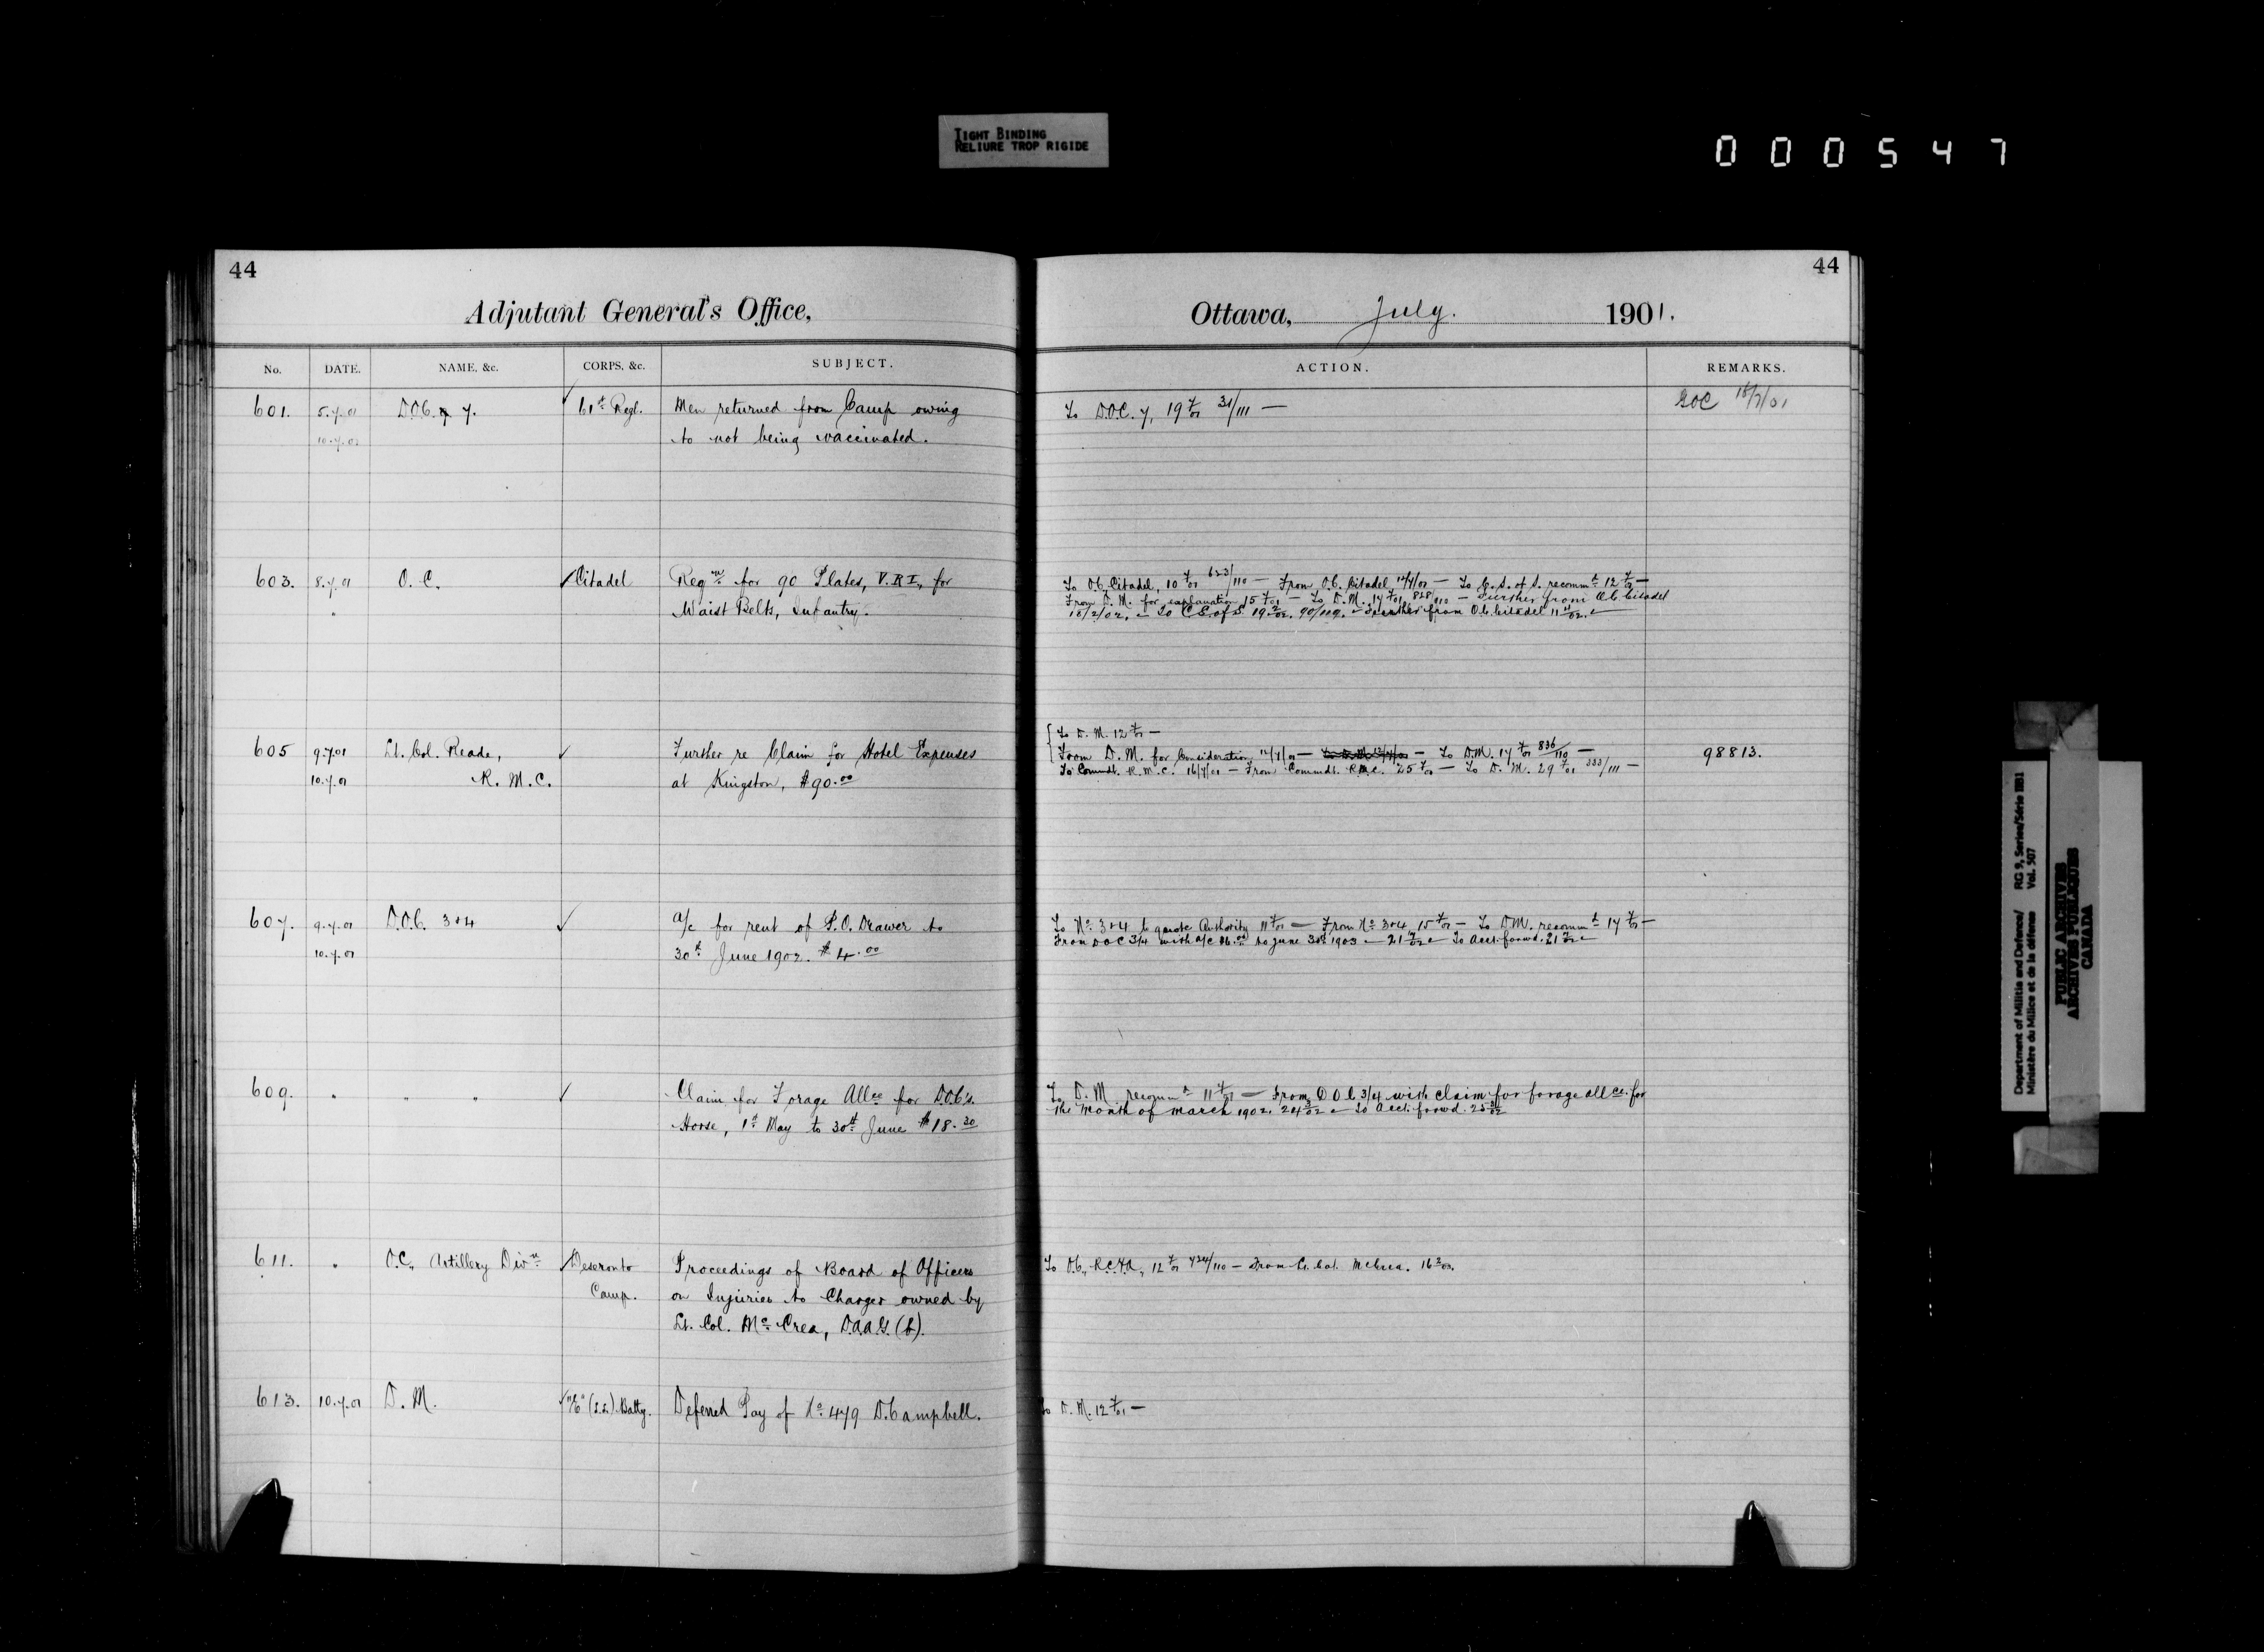 TIGHT BINDING
RELIURE TROP RIGIDE
000547
44
Adjutant General's Office,
No. DATE. NAME, &c. CORPS, &c. SUBJECT.
601. 5.7.01 D.O.C. 7. ✓ 61st Regt. Men returned from Camp owing
10.7.01 to not being vaccinated.
603. 8.7.01 O.C. ✓ Citadel Reqn for 90 Plates, V.R.I., for
" Waist Belts, Infantry.
605 9.7.01 Lt. Col. Reade, ✓ Further re Claim for Hotel Expenses
10.7.01 R.M.C. at Kingston, $90.00
607. 9.7.01 D.O.C. 3+4 ✓ a/c for rent of P.O. Drawer to
10.7.01 30th June 1902. $4.00
609. " " " ✓ Claim for Forage Allce for D.O.C's.
Horse, 1st May to 30th June $18.30
611. " O.C., Artillery Divn ✓ Deseronto Proceedings of Board of Officers
Camp. on Injuries to Charger owned by
Lt. Col. McCrea, D.A.A.G. (b).
613. 10.7.01 D.M. ✓ (S.S.) Batty. Deferred Pay of No. 479 D. Campbell.
44
Ottawa, July. 1901.
ACTION. REMARKS.
To D.O.C. 7, 19 7/01 31/111 — GOC 18/7/01
To O.C. Citadel, 10 7/01 623/110 — From O.C. Citadel, 12/7/01 — To C.S. of S. recommd 12 7/01 —
From D.M. for explanation 15 7/01 — To D.M. 17 7/01 828/110 — Further from O.C. Citadel
To C.S. of S. 19 2/02. 90/119. — Further from O.C. Citadel
To D.M. 12 7/01 —
From D.M. for Consideration 12/7/01 — To D.M. 17 7/01 836/110 — 98813.
To Commdt. R.M.C. 16/7/01 — From Commdt. R.M.C. 25 7/01 — To D.M. 29 7/01 333/111 —
To No. 3+4 to quote Authority 11 7/01 — From No. 3+4 15 7/01 — To D.M. recommd 17 7/01 —
From DOC 3/4 with a/c to June 30th 1903 — To Acct. forwd.
To D.M. recommd 11 7/01 — From D.O.C. 3/4 with claim for forage allce. for
the month of March 1902. 24 3/02 — To Acct. forwd. 25 3/02
To O.C., R.C.H.A., 12 7/01 — From Lt. Col. McCrea.
To D.M. 12 7/01 —
Department of Militia and Defence/ RG 9, Series/Série IIB1
Ministère du Milice et de la défense Vol. 507
PUBLIC ARCHIVES
ARCHIVES PUBLIQUES
CANADA